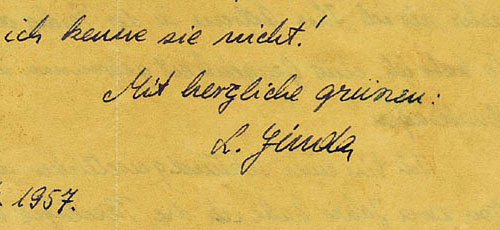 ich kenne sie nicht!
Mit herzliche grüssen:
L.
1957.